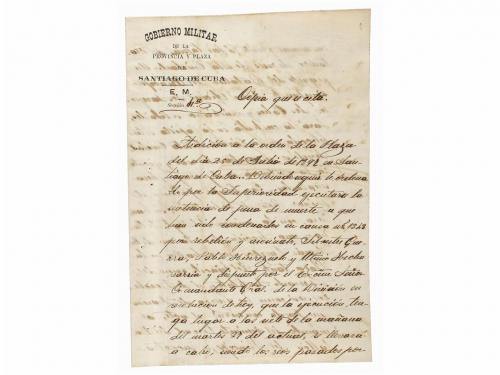 GOBIERNO MILITAR
DE LA
PROVINCIA Y PLAZA
DE
SANTIAGO DE CUBA
E. M.
Sección
Copia que se cita.
Adicion á la orden de la Plaza
del dia 25 de Julio de en San-
tiago de Cuba. Debiendo segun lo ordena-
do por la Superioridad ejecutarse la
sentencia de pena de muerte a que
han sido condenados en causa nº
por rebelion y asesinato, Silvestre Gue-
rra, Pablo y
y dispuesto por el Excmo Señor
Comandante Gral. de la Division en
de hoy, que la ejecucion ten-
ga lugar a las siete de la mañana
del martes 27 del actual, se llevará
a cabo, siendo los reos pasados por